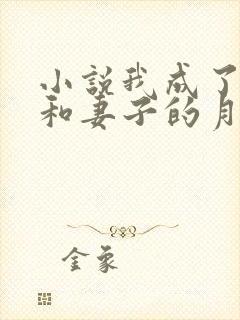 小說我成了
和妻子的月
金象